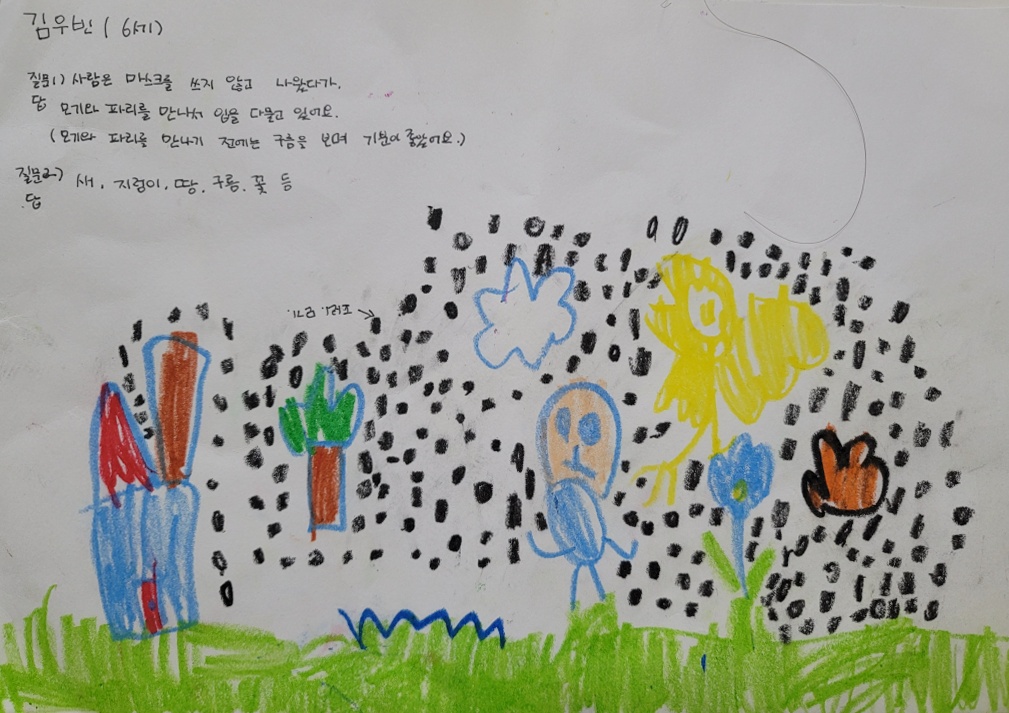 김우빈 ( 6세)
질문1) 사람은 마스크를 쓰지 않고 나왔다가.
답 모기와 파리를 만나서 입을 다물고 있어요.
( 모기와 파리를 만나기 전에는 구름을 보며 기분이 좋았어요.)
질문2) 새, 지렁이, 땅, 구름, 꽃 등
답
파리, 모기.